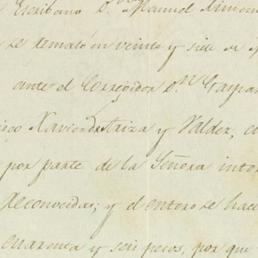 Escribano D.ⁿ Manuel Ximen
se remató en veinte y siete de
ante el Corregidor D.ⁿ Gaspar
Xavier de Ariza y Valdez, co
por parte de la Señora inter
Reconocidas; y el entero se hace
cuarenta y seis pesos, por que